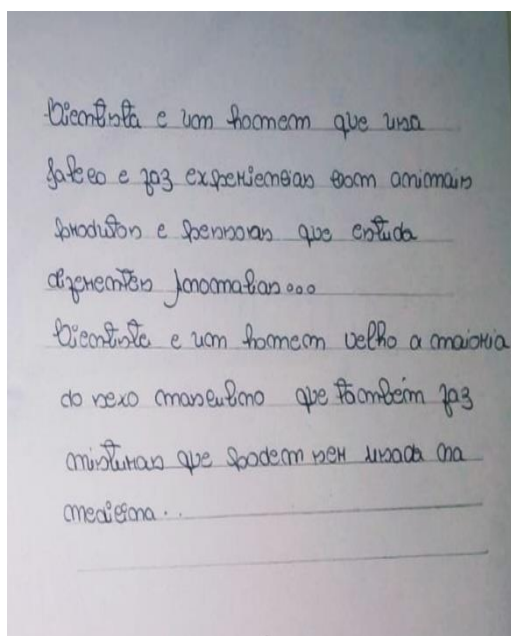 Cientista e um homem que usa
jaleco e faz experiencias com animais
produtos e pessoas que estuda
diferentes
Cientista e um homem velho a maioria
do sexo masculino que também faz
misturas que podem ser usada na
medicina..